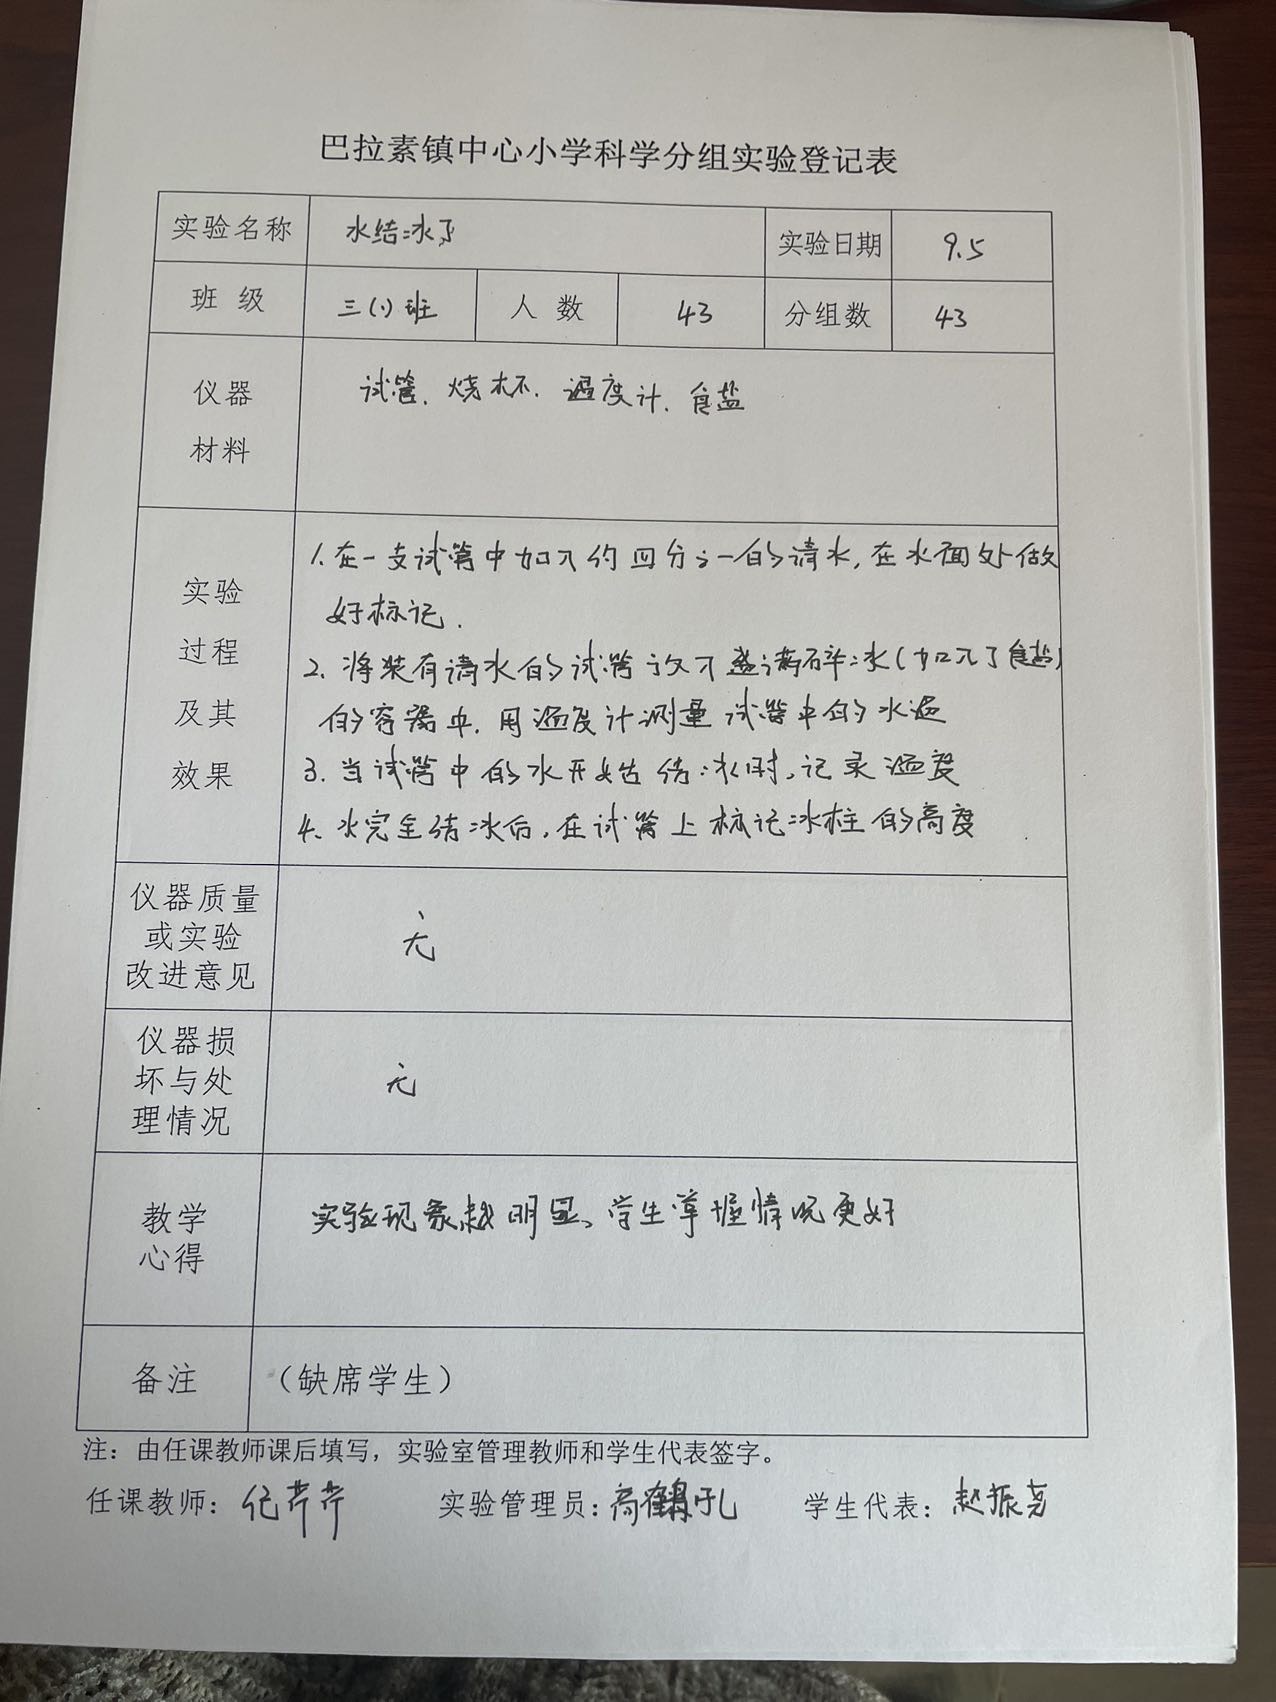 巴拉素镇中心小学科学分组实验登记表
实验名称 水结冰了 实验日期 9.5
班 级 三(1)班 人 数 43 分组数 43
仪器
材料
试管、烧杯、温度计、食盐
实验
过程
及其
效果
1.在一支试管中加入约四分之一的清水,在水面处做
好标记.
2.将装有清水的试管放入盛满碎冰(加入了食盐)
的容器中.用温度计测量试管中的水温
3.当试管中的水开始结冰时,记录温度
4.水完全结冰后,在试管上标记冰柱的高度
仪器质量
或实验
改进意见
无
仪器损
坏与处
理情况
无
教学
心得
实验现象越明显、学生掌握情况更好
备注 (缺席学生)
注:由任课教师课后填写,实验室管理教师和学生代表签字。
任课教师:纪芹芹 实验管理员:高 学生代表:赵振尧